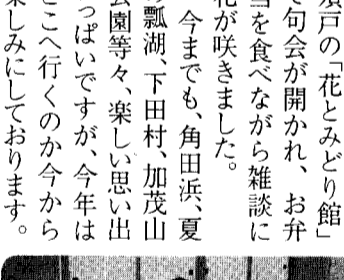 戸の「花とみどり館」
で句会が開かれ、お弁
当を食べながら雑談に
花が咲きました。
今までも、角田浜、夏
の瓢湖、下田村、加茂山
公園等々、楽しい思い出
っぱいですが、今年は
どこへ行くのか今から
楽しみにしております。